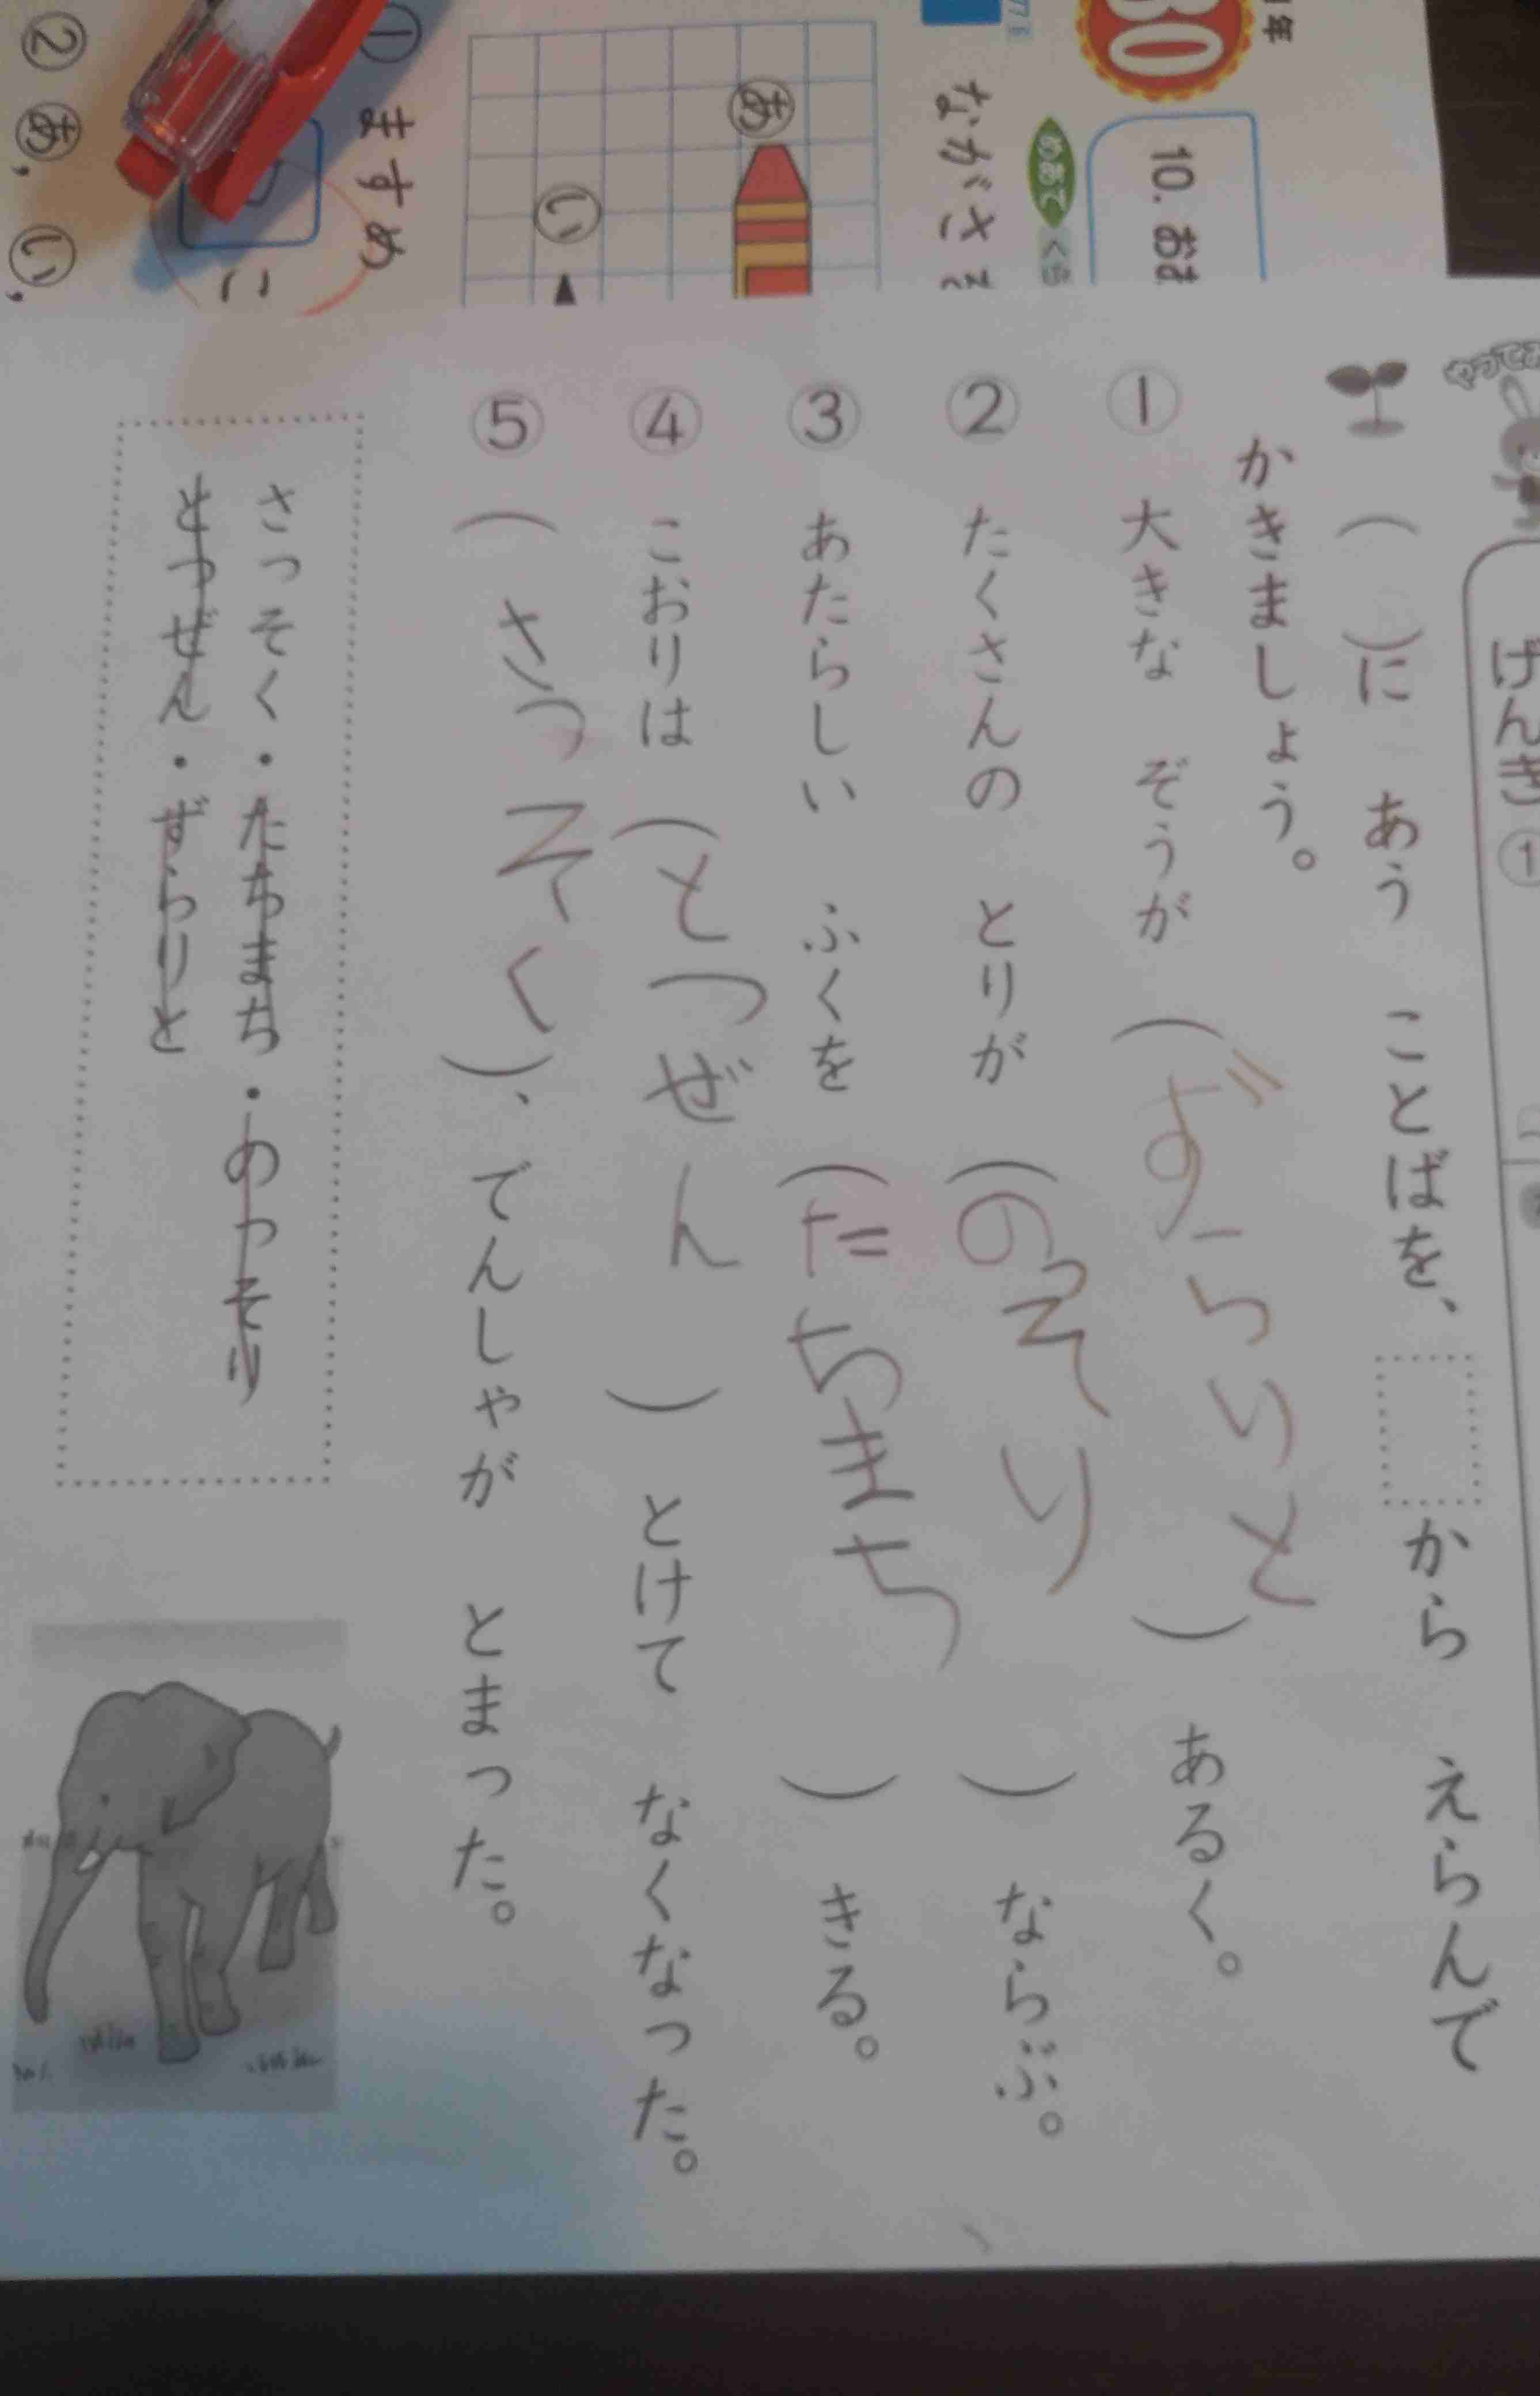 げんき①
（　）に あう ことばを、 から えらんで
かきましょう。
① 大きな ぞうが （ずらりと） あるく。
② たくさんの とりが （のっそり） ならぶ。
③ あたらしい ふくを （たちまち） きる。
④ こおりは （とつぜん） とけて なくなった。
⑤ （さっそく）、でんしゃが とまった。
さっそく・たちまち・のっそり
とつぜん・ずらりと
80
10. おま
めあて
ながさを
あ
い
① ますめ
こ
② あ, い,